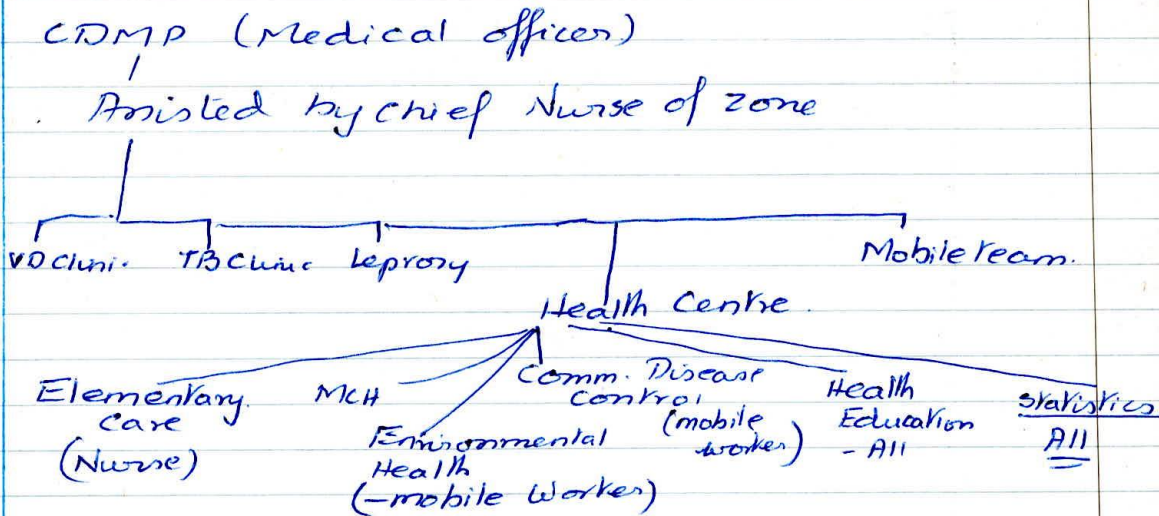 CDMP (Medical officer)
Assisted by chief Nurse of zone
VD Clini. TB Clinic Leprosy Mobile team.
Health Centre.
Elementary. Care (Nurse)
MCH
Environmental Health (-mobile Worker)
Comm. Disease control (mobile worker)
Health Education - All
Statistics All